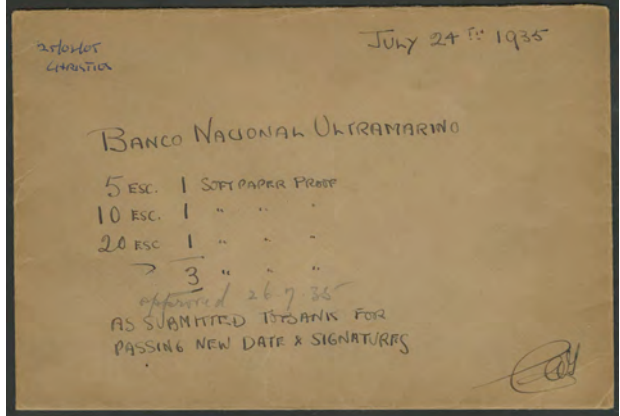 JULY 24TH 1935
BANCO NACIONAL ULTRAMARINO
5 ESC. 1 SOFT PAPER PROOF
10 ESC. 1 " " "
20 ESC 1 " " "
3 " " "
approved 26.7.35
AS SUBMITTED TO BANK FOR
PASSING NEW DATE & SIGNATURES